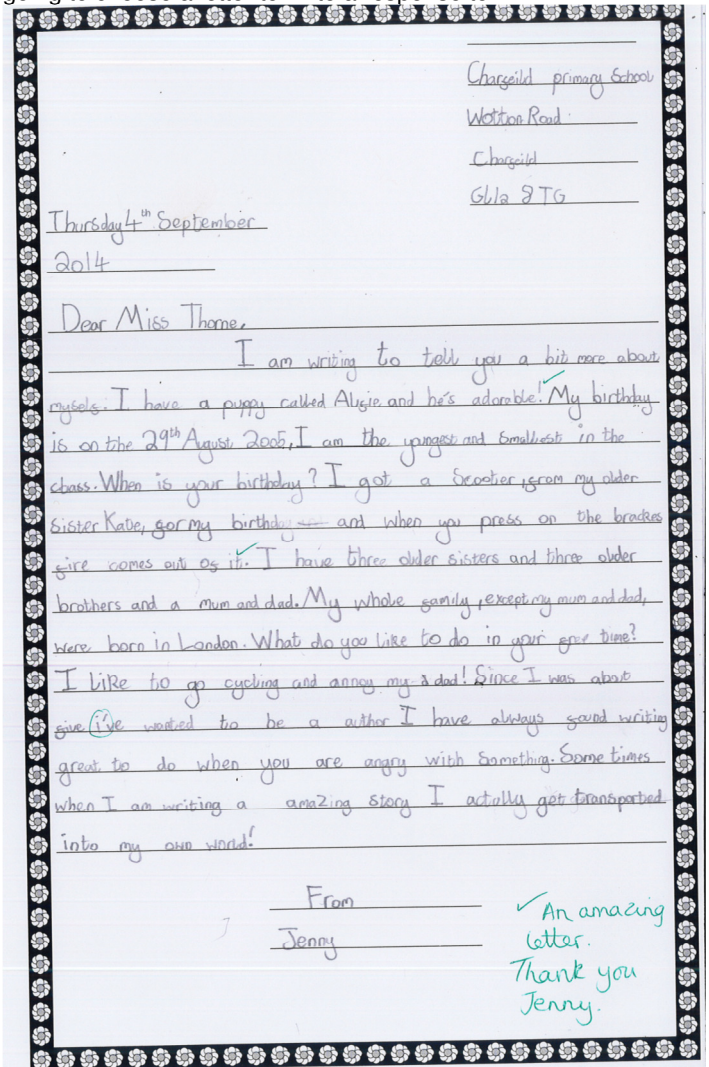 Charfeild primary School
Wotton Road
Charfeild
GL12 8TG
Thursday 4th September
2014
Dear Miss Thorne,
I am writing to tell you a bit more about
myself. I have a puppy called and he's adorable! My birthday
is on the 29th August 2005, I am the youngest and smallest in the
class. When is your birthday? I got a Scooter, from my older
sister Katie, for my birthday and when you press on the brackes
fire comes out of it. I have three older sisters and three older
brothers and a mum and dad. My whole family, except my mum and dad,
were born in London. What do you like to do in your free time?
I like to go cycling and annoy my dad! Since I was about
five i've wanted to be a author I have always found writing
great to do when you are angry with something. Some times
when I am writing a amazing story I actully get transported
into my own world!
From
Jenny
An amazing
letter.
Thank you
Jenny.